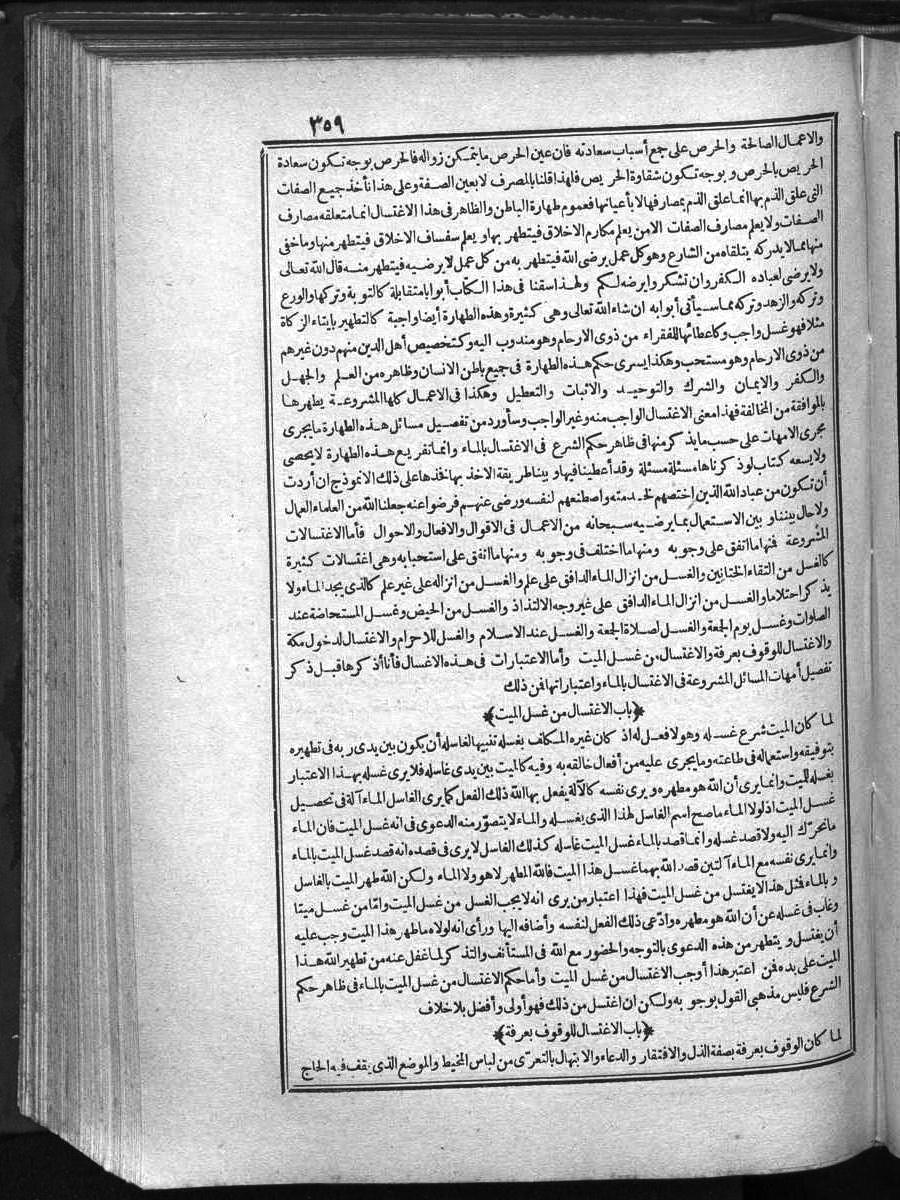 ٣٥٩
والاعمال الصالحة والحرص على جمع أسباب سعادته فان عين الحرص ما يتمكن زواله فالحرص بوجه تكون سعادة
الحريص بالحرص وبوجه تكون شقاوة الحريص فلهذا قلنا بالمصرف لا بعين الصفة وعلى هذا نأخذ جميع الصفات
التى علق الذم بها انما علق الذم بمصارفها لا بأعيانها فعموم طهارة الباطن والظاهر فى هذا الاغتسال انما متعلقه مصارف
الصفات ولا يعلم مصارف الصفات الا من يعلم مكارم الاخلاق فيتطهر بها ويعلم سفساف الاخلاق فيتطهر منها وما خفى
منها مما لا يدركه يتلقاه من الشارع وهو كل عمل يرضى الله فيتطهر به من كل عمل لا يرضيه فيتطهر منه قال الله تعالى
ولا يرضى لعباده الكفر وان تشكروا يرضه لكم ولهذا سقنا فى هذا الكتاب أبوابا متقابلة كالتوبة وتركها والورع
وتركه والزهد وتركه مما سيأتى أبوابه ان شاء الله تعالى وهى كثيرة وهذه الطهارة أيضا واجبة كالتطهير بايتاء الزكاة
مثلا فهو غسل واجب وكاعطائها للفقراء من ذوى الارحام وهو مندوب اليه وكتخصيص أهل الدين منهم دون غيرهم
من ذوى الارحام وهو مستحب وهكذا يسرى حكم هذه الطهارة فى جميع باطن الانسان وظاهره من العلم والجهل
والكفر والايمان والشرك والتوحيد والاثبات والتعطيل وهكذا فى الاعمال كلها المشروعة يطهرها
بالموافقة من المخالفة فهذا معنى الاغتسال الواجب منه وغير الواجب وسأورد من تفصيل مسائل هذه الطهارة ما يجرى
مجرى الامهات على حسب ما يذكر منها فى ظاهر حكم الشرع فى الاغتسال بالماء وانما تفريع هذه الطهارة لا يحصى
ولا يسعه كتاب لو ذكرناها مسئلة مسئلة وقد أعطينا فيها وبينا طريقة الاخذ بها فخذها على ذلك الانموذج ان أردت
أن تكون من عباد الله الذين اختصهم لخدمته واصطنعهم لنفسه ورضى عنهم فرضوا عنه جعلنا الله من العلماء العمال
ولا حال بيننا وبين الاستعمال بما يرضيه سبحانه من الاعمال فى الاقوال والافعال والاحوال فأما الاغتسالات
المشروعة فمنها ما اتفق على وجوبه ومنها ما اختلف فى وجوبه ومنها ما اتفق على استحبابه وهى اغتسالات كثيرة
كالغسل من التقاء الختانين والغسل من انزال الماء الدافق على علم والغسل من انزاله على غير علم كالذى يجد الماء ولا
يذكر احتلاما والغسل من انزال الماء الدافق على غير وجه الالتذاذ والغسل من الحيض وغسل المستحاضة عند
الصلوات وغسل يوم الجمعة والغسل لصلاة الجمعة والغسل عند الاسلام والغسل للاحرام والاغتسال لدخول مكة
والاغتسال للوقوف بعرفة والاغتسال من غسل الميت وأما الاعتبارات فى هذه الاغسال فأنا أذكرها قبل ذكر
تفصيل أمهات المسائل المشروعة فى الاغتسال بالماء واعتباراتها فمن ذلك
﴿باب الاغتسال من غسل الميت﴾
لما كان الميت شرع غسله وهو لا فعل له اذ كان غيره المكلف بغسله تنبيها لغاسله أن يكون بين يدى ربه فى تطهيره
بتوفيقه واستعماله فى طاعته وما يجرى عليه من أفعال خالقه به وفيه كالميت بين يدى غاسله فلا يرى غسله بهذا الاعتبار
بغسله للميت وانما يرى أن الله هو مطهره ويرى نفسه كالآلة يفعل بها الله ذلك الفعل كما يرى الغاسل الماء آلة فى تحصيل
غسل الميت اذ لولا الماء ما صح اسم الغاسل لهذا الذى يغسله والماء لا يتصور منه الدعوى فى انه غسل الميت فان الماء
ما تحرك اليه ولا قصد غسله وانما قصد بالماء غسل الميت غاسله كذلك الغاسل لا يرى فى قصده انه قصد غسل الميت بالماء
وانما يرى نفسه مع الماء آلتين قصد الله بهما غسل هذا الميت فالله المطهر لا هو ولا الماء ولكن الله طهر الميت بالغاسل
وبالماء فمثل هذا لا يغتسل من غسل الميت فهذا اعتبار من يرى انه لا يجب الغسل من غسل الميت وامّا من غسل ميتا
وغاب فى غسله عن أن الله هو مطهره وادّعى ذلك الفعل لنفسه وأضافه اليها ورأى انه لولاه ما طهر هذا الميت وجب عليه
أن يغتسل ويتطهر من هذه الدعوى بالتوجه والحضور مع الله فى المستأنف والتذكر لما غفل عنه من تطهير الله هذا
الميت على يده فمن اعتبر هذا أوجب الاغتسال من غسل الميت وأما حكم الاغتسال من غسل الميت بالماء فى ظاهر حكم
الشرع فليس مذهبى القول بوجوبه ولكن ان اغتسل من ذلك فهو أولى وأفضل بلا خلاف
﴿باب الاغتسال للوقوف بعرفة﴾
لما كان الوقوف بعرفة بصفة الذل والافتقار والدعاء والابتهال بالتعرّى من لباس المخيط والموضع الذى يقف فيه الحاج